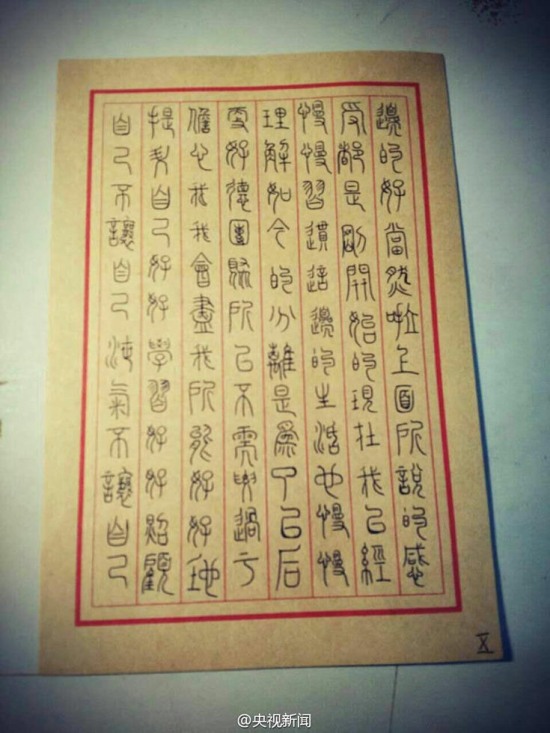 邊的好當然啦上面所說的感
受都是剛開始的現在我已經
慢慢習遺這邊的生活也慢慢
理解如今的分離是為了以后
更好德團聚所以不需要過于
儋心我我會盡我所能好好地
提自己好好學習好好照顧
自己不讓自己泄氣不讓自己
五
@央视新闻